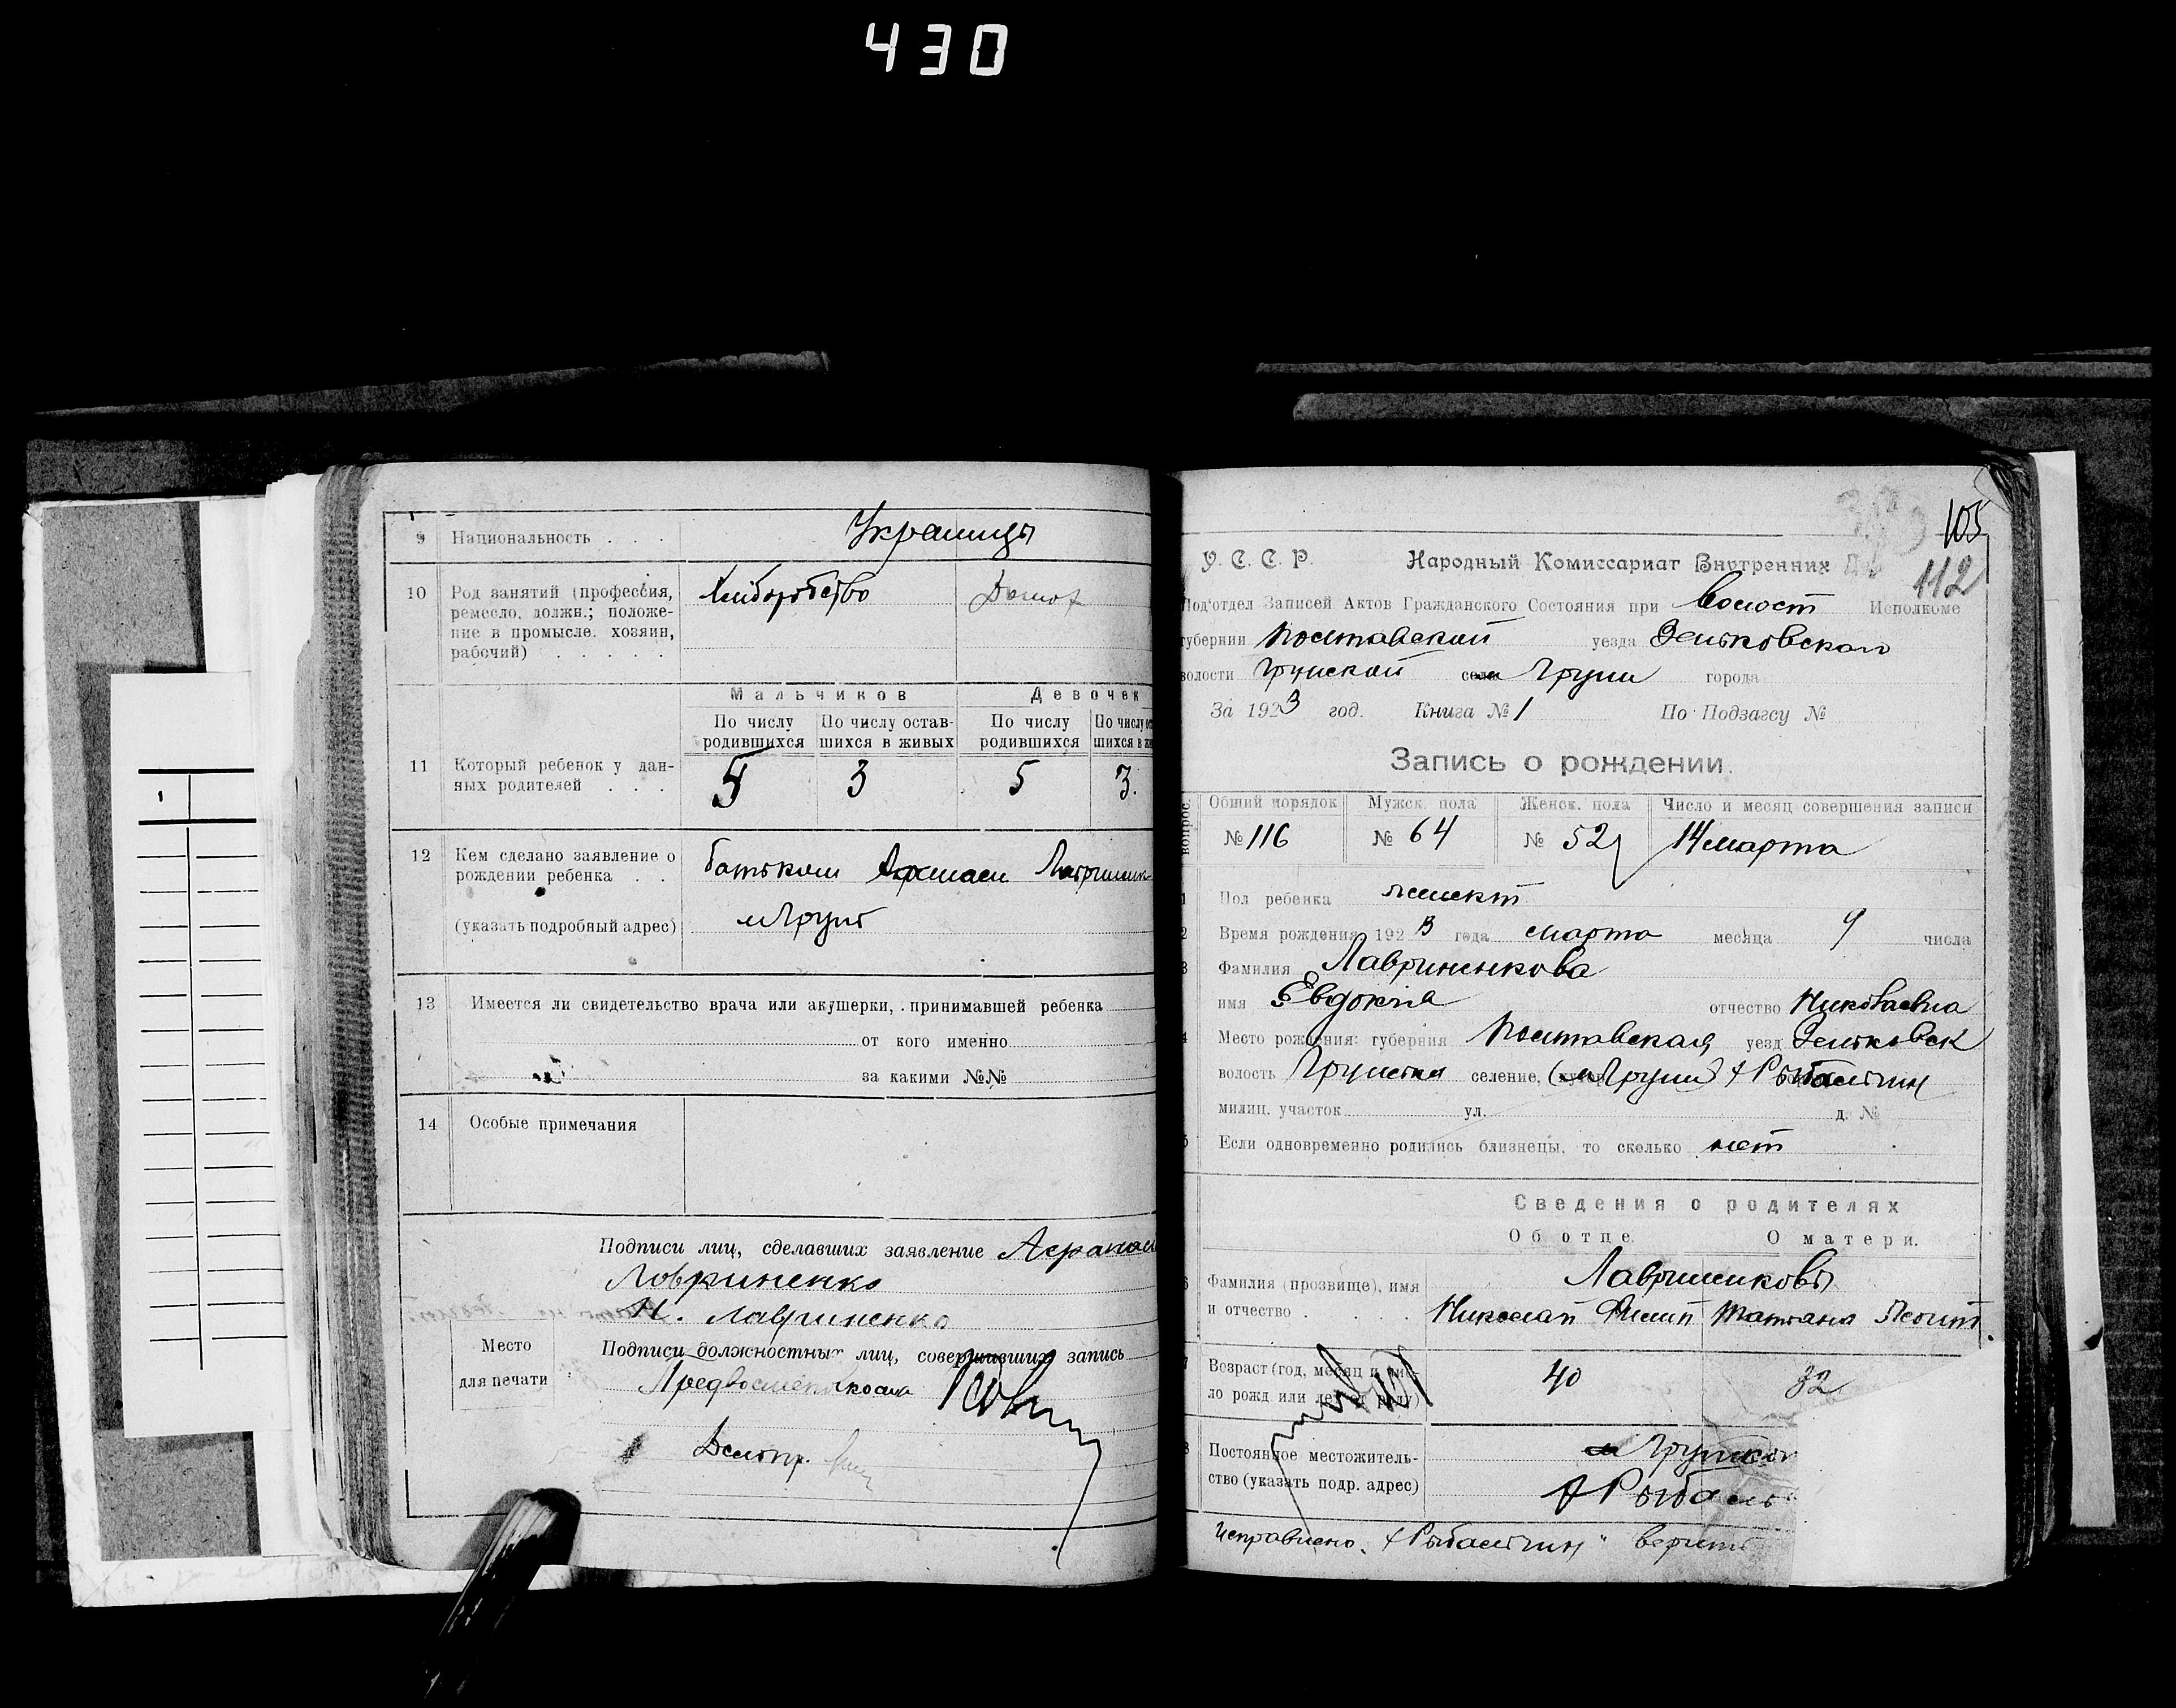 430
9 Национальность . . . Украинцы
10 Род занятий (профессия, ремесло, должн.; положе-
ние в промысле. хозяин,
рабочий) . . . . . Хліборобство
Мальчиков Девочек
По числу родившихся По числу остав-
шихся в живых По числу родившихся По числу
шихся в
11 Который ребенок у дан-
ных родителей . . . 5 3 5 3.
12 Кем сделано заявление о
рождении ребенка . . батьком
(указать подробный адрес) м Грунь
13 Имеется ли свидетельство врача или акушерки, принимавшей ребенка
от кого именно
за какими №№
14 Особые примечания
Подписи лиц, сделавших заявление
Лавриненко
Н. Лавриненко
Место
для печати
Подписи должностных лиц, совершивших запись
105
112
У. С. С. Р. Народный Комиссариат Внутренних
Под'отдел Записей Актов Гражданского Состояния при Волост Исполкоме
губернии Полтавской уезда Зеньковского
волости Грунской села Груни города
За 1923 год. Книга № 1 По Подзагсу №
Запись о рождении.
Общий порядок Мужск. пола Женск. пола Число и месяц совершения записи
№ 116 № 64 № 52 14 марта
Пол ребенка женск
Время рождения 1923 года марта месяца 9 числа
Фамилия Лавриненкова
имя Евдокія отчество Николаевна
Место рождения: губерния Полтавская уезд Зеньковск
волость Грунская селение, (м Грунь) х Рыбальчин
милиц. участок ул. д. №
Если одновременно родились близнецы, то сколько нет
Сведения о родителях
Об отце. О матери.
Фамилия (прозвище), имя
и отчество . . . . Лавриненковы
Николай Филип Татьяна Леонт.
Возраст (год, месяц и чис-
ло рожд или лет от роду) 40 32
Постоянное местожитель-
ство (указать подр. адрес) м
х Рыбаль
Исправлено „х Рыбальчин" верить